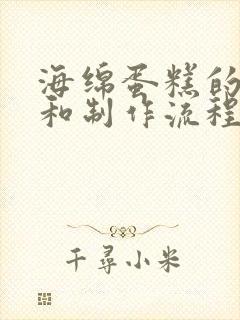 海绵蛋糕的
和制作流程
千尋小米